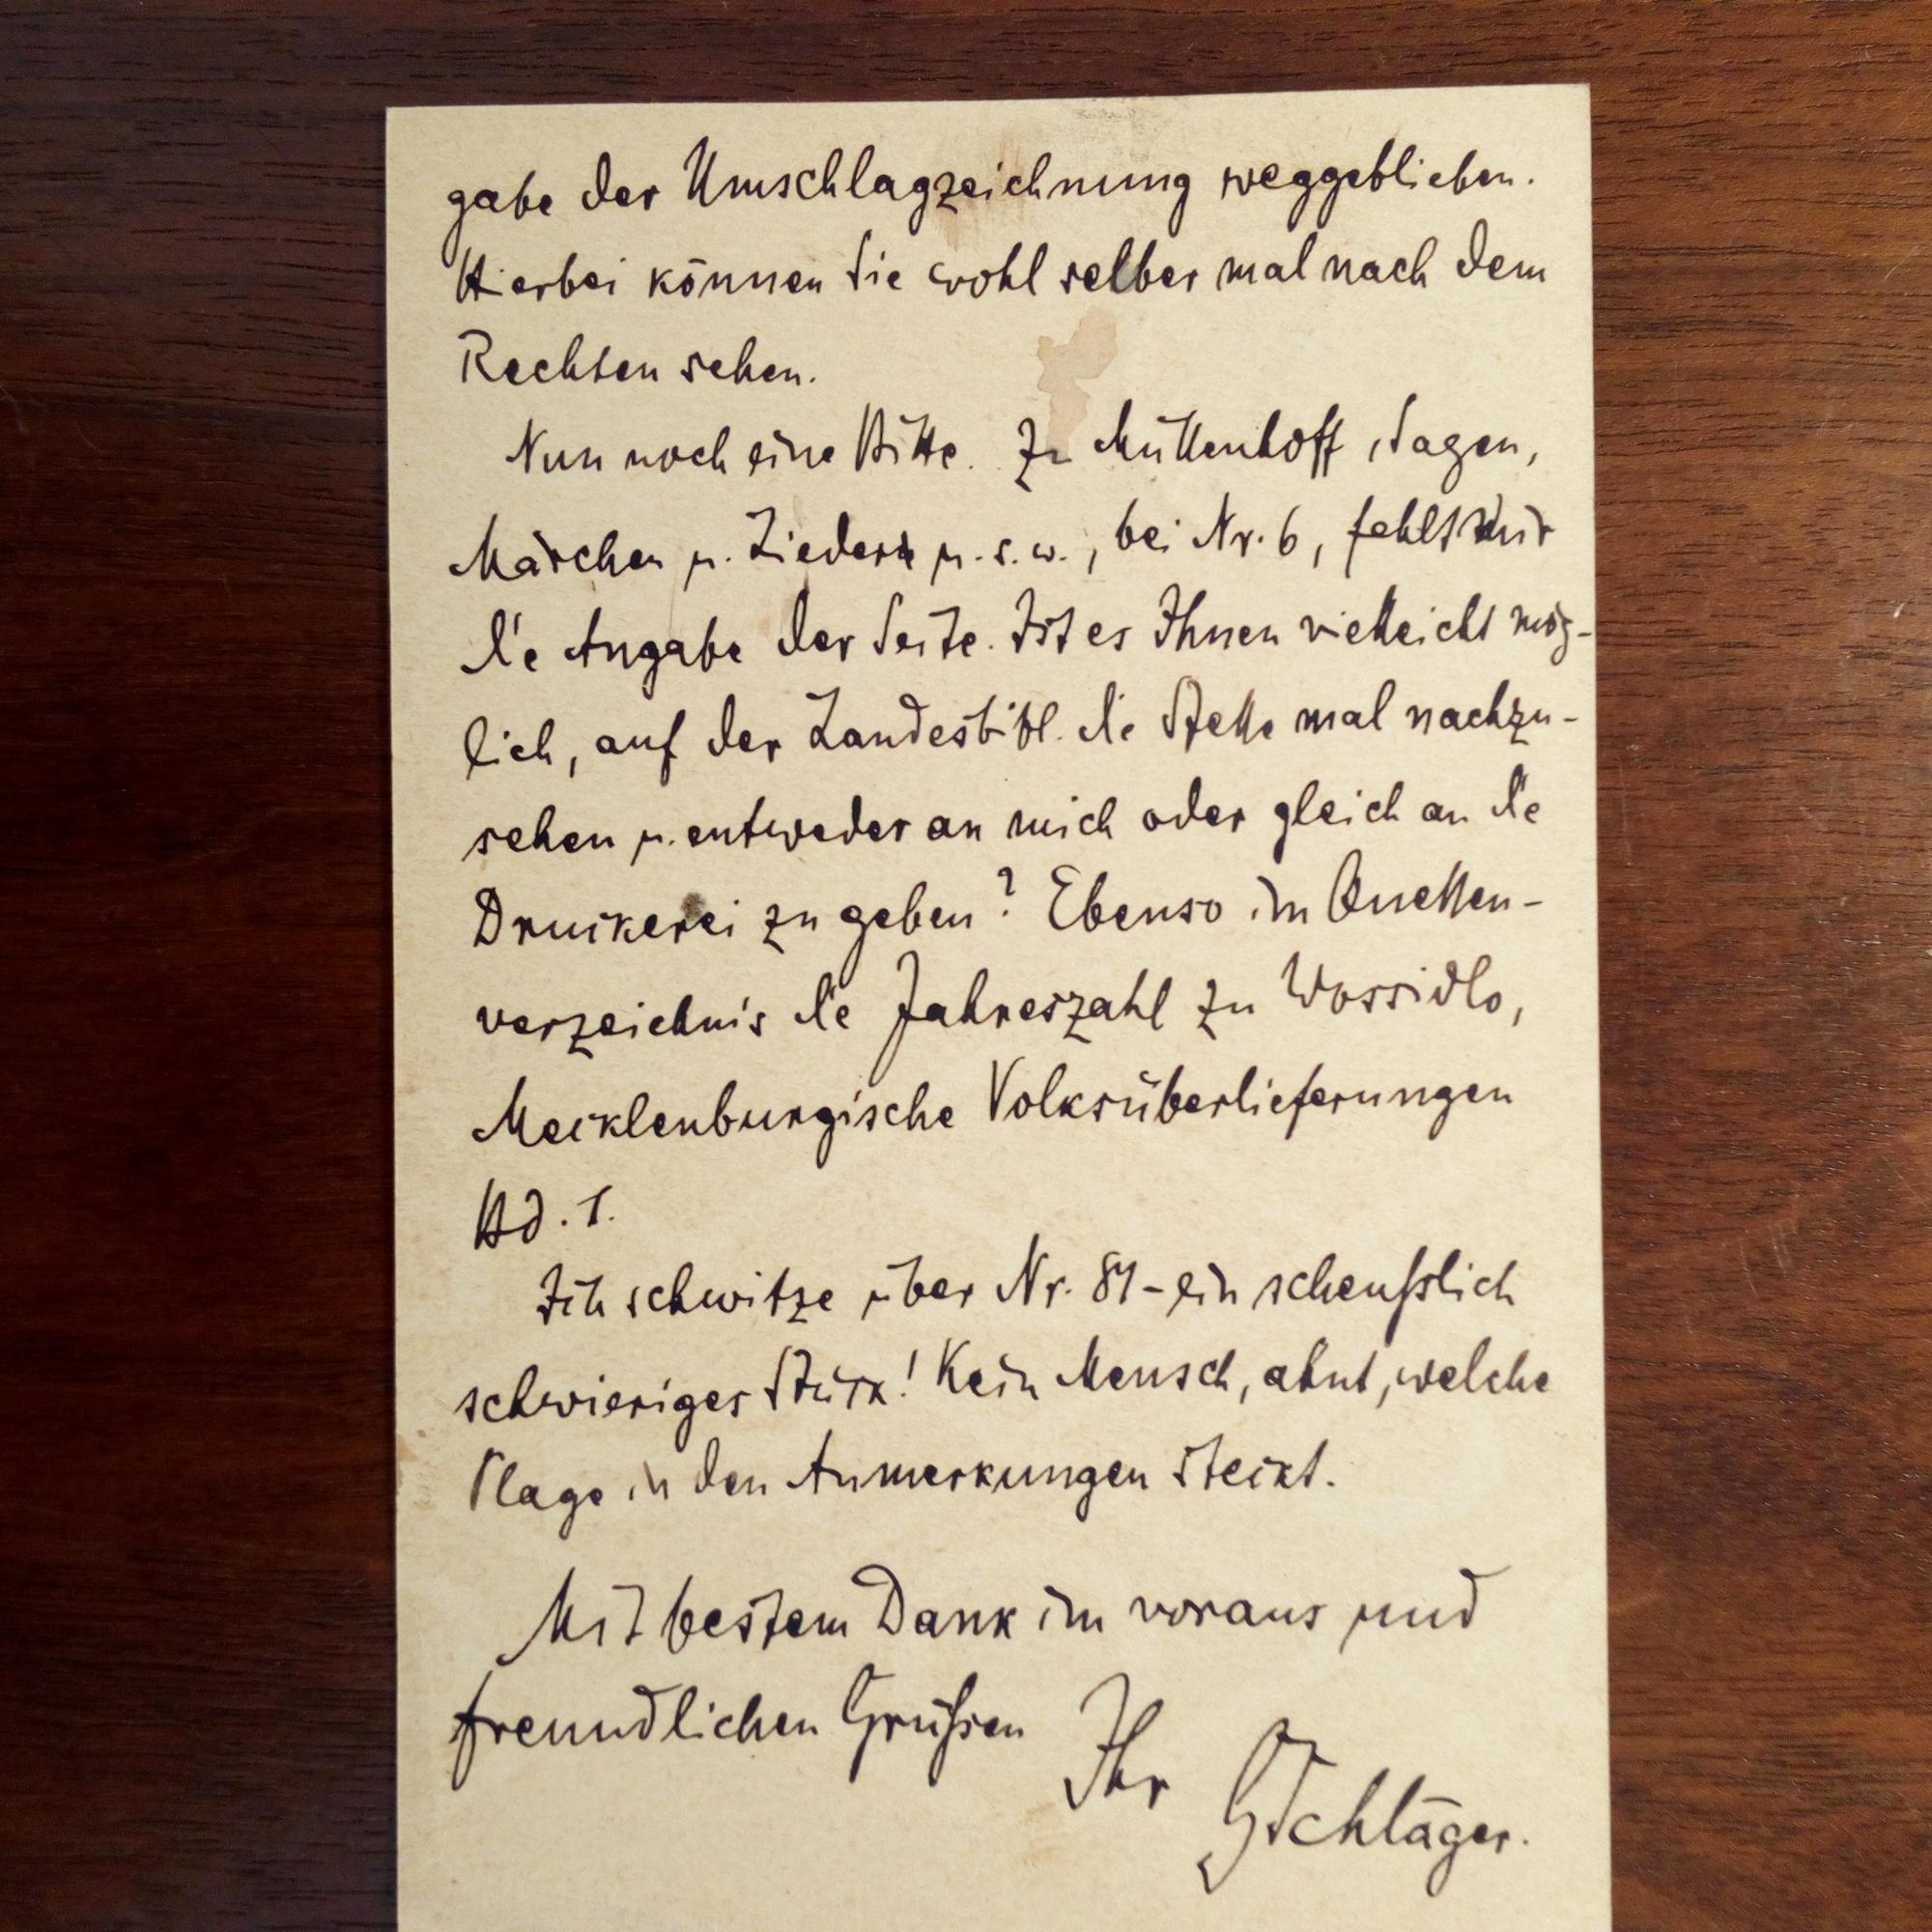 gabe der Umschlagzeichnung weggeblieben.
Hierbei können Sie wohl selber mal nach dem
Rechten sehen.
Nun noch eine Bitte. Zu Müllenhoff, Sagen,
Märchen u. Lieder u.s.w., bei Nr. 6, fehlt mir
die Angabe der Seite. Ist es Ihnen vielleicht mög-
lich, auf der Landesbibl. die Stelle mal nachzu-
sehen u. entweder an mich oder gleich an die
Druckerei zu geben? Ebenso im Quellen-
verzeichnis die Jahreszahl zu Wossidlo,
Mecklenburgische Volksüberlieferungen
Bd. 1.
Ich schwitze über Nr. 81 - ein scheußlich
schwieriges Stück! Kein Mensch, ahnt, welche
Plage in den Anmerkungen steckt.
Mit bestem Dank im voraus und
freundlichen Grüßen Ihr GSchläger.